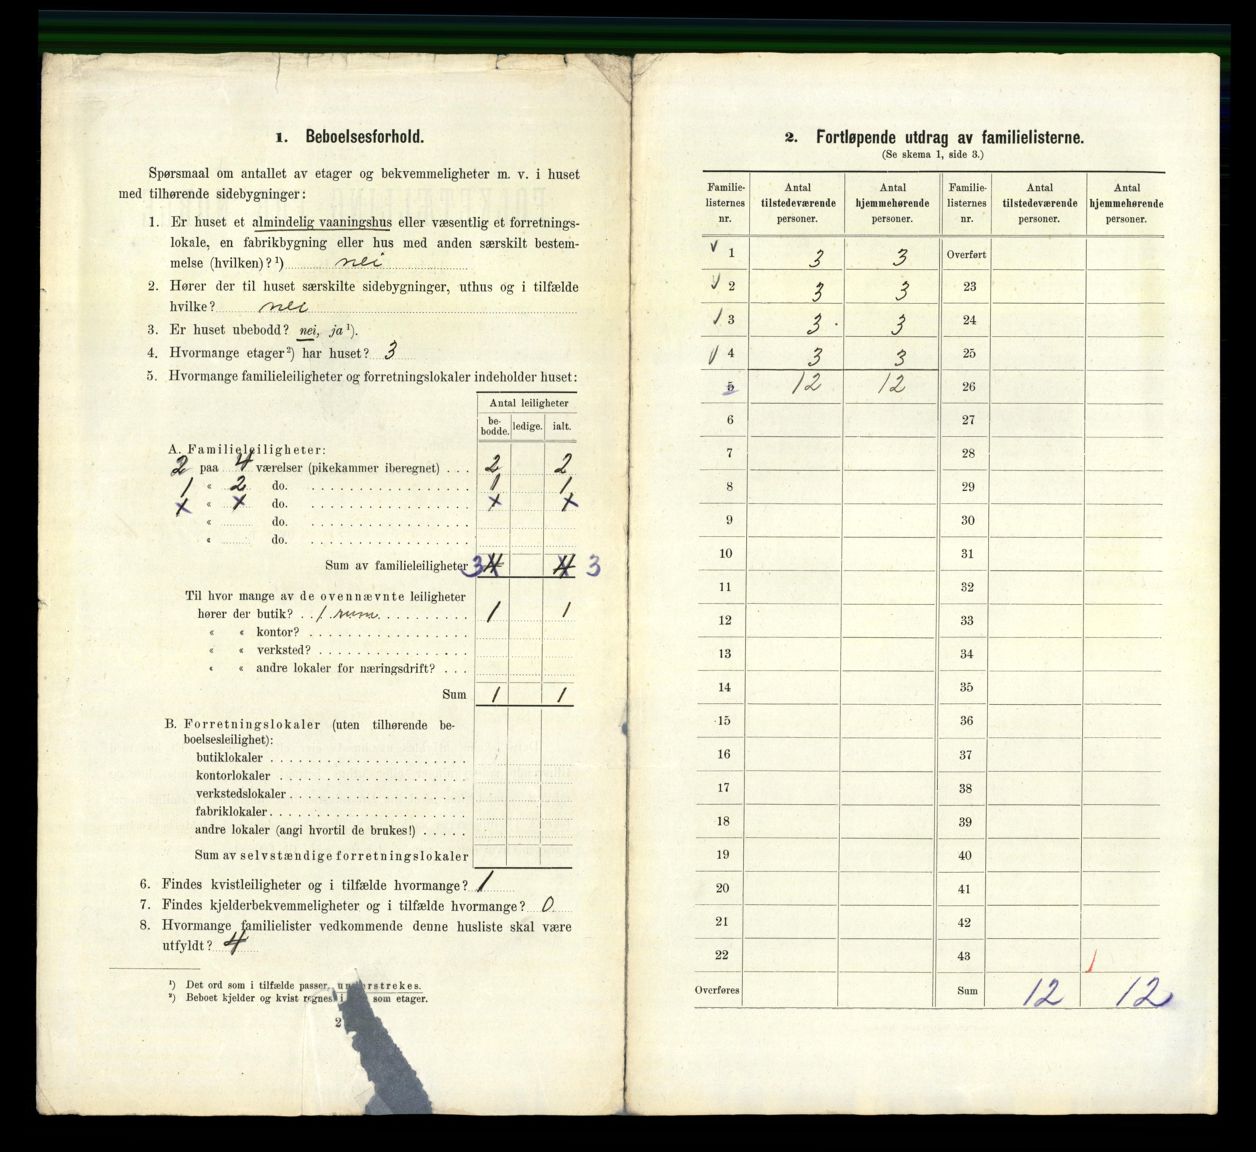 1. Beboelsesforhold.
Spørsmaal om antallet av etager og bekvemmeligheter m. v. i huset
med tilhørende sidebygninger:
1. Er huset et almindelig vaaningshus eller væsentlig et forretnings-
lokale, en fabrikbygning eller hus med anden særskilt bestem-
melse (hvilken)? ¹) nei
2. Hører der til huset særskilte sidebygninger, uthus og i tilfælde
hvilke? nei
3. Er huset ubebodd? nei, ja ¹).
4. Hvormange etager ²) har huset? 3
5. Hvormange familieleiligheter og forretningslokaler indeholder huset:
Antal leiligheter
be-
bodde. ledige. ialt.
A. Familieleiligheter:
2 paa 4 værelser (pikekammer iberegnet) . . . 2 2
1 « 2 do. 1 1
x « x do. x x
« do.
« do.
Sum av familieleiligheter 3 4 4 3
Til hvor mange av de ovennævnte leiligheter
hører der butik? 1 rum 1 1
« « kontor?
« « verksted?
« « andre lokaler for næringsdrift? . . .
Sum 1 1
B. Forretningslokaler (uten tilhørende be-
boelsesleilighet):
butiklokaler
kontorlokaler
verkstedslokaler
fabriklokaler
andre lokaler (angi hvortil de brukes!)
Sum av selvstændige forretningslokaler
6. Findes kvistleiligheter og i tilfælde hvormange? 1
7. Findes kjelderbekvemmeligheter og i tilfælde hvormange? 0
8. Hvormange familielister vedkommende denne husliste skal være
utfyldt? 4
¹) Det ord som i tilfælde passer, understrekes.
²) Beboet kjelder og kvist regnes i som etager.
2
2. Fortløpende utdrag av familielisterne.
(Se skema 1, side 3.)
Familie-
listernes
nr. Antal
tilstedeværende
personer. Antal
hjemmehørende
personer. Familie-
listernes
nr. Antal
tilstedeværende
personer. Antal
hjemmehørende
personer.
√ 1 3 3 Overført
√ 2 3 3 23
√ 3 3 3 24
√ 4 3 3 25
5 12 12 26
6 27
7 28
8 29
9 30
10 31
11 32
12 33
13 34
14 35
15 36
16 37
17 38
18 39
19 40
20 41
21 42
22 43
Overføres Sum 12 12